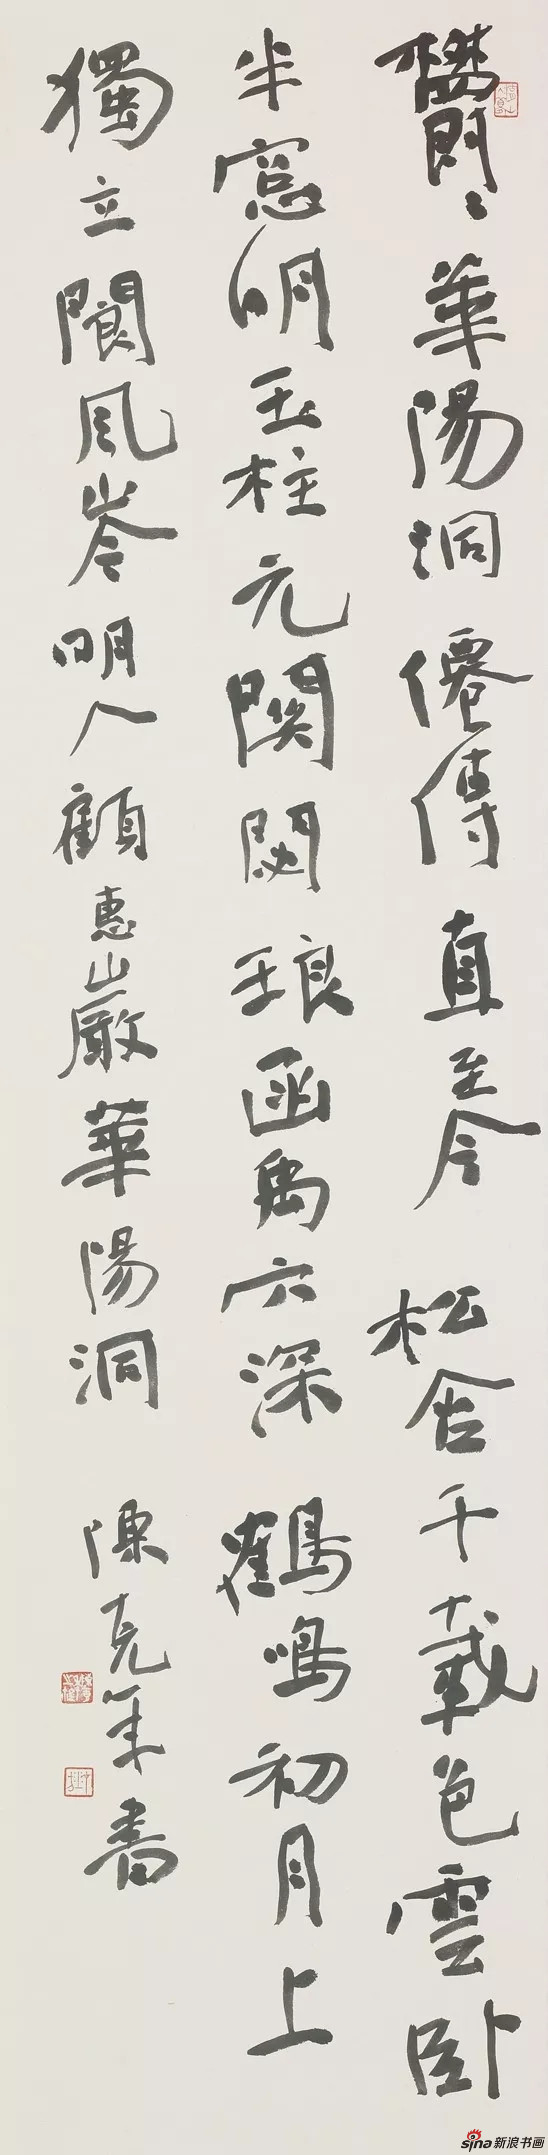 華陽洞僊傳直至今松含千載色雲卧
半窓明玉柱元關閟琅函禹穴深鶴鳴初月上
獨立閬風岑明人顧惠巖華陽洞陳克年書
sina新浪书画